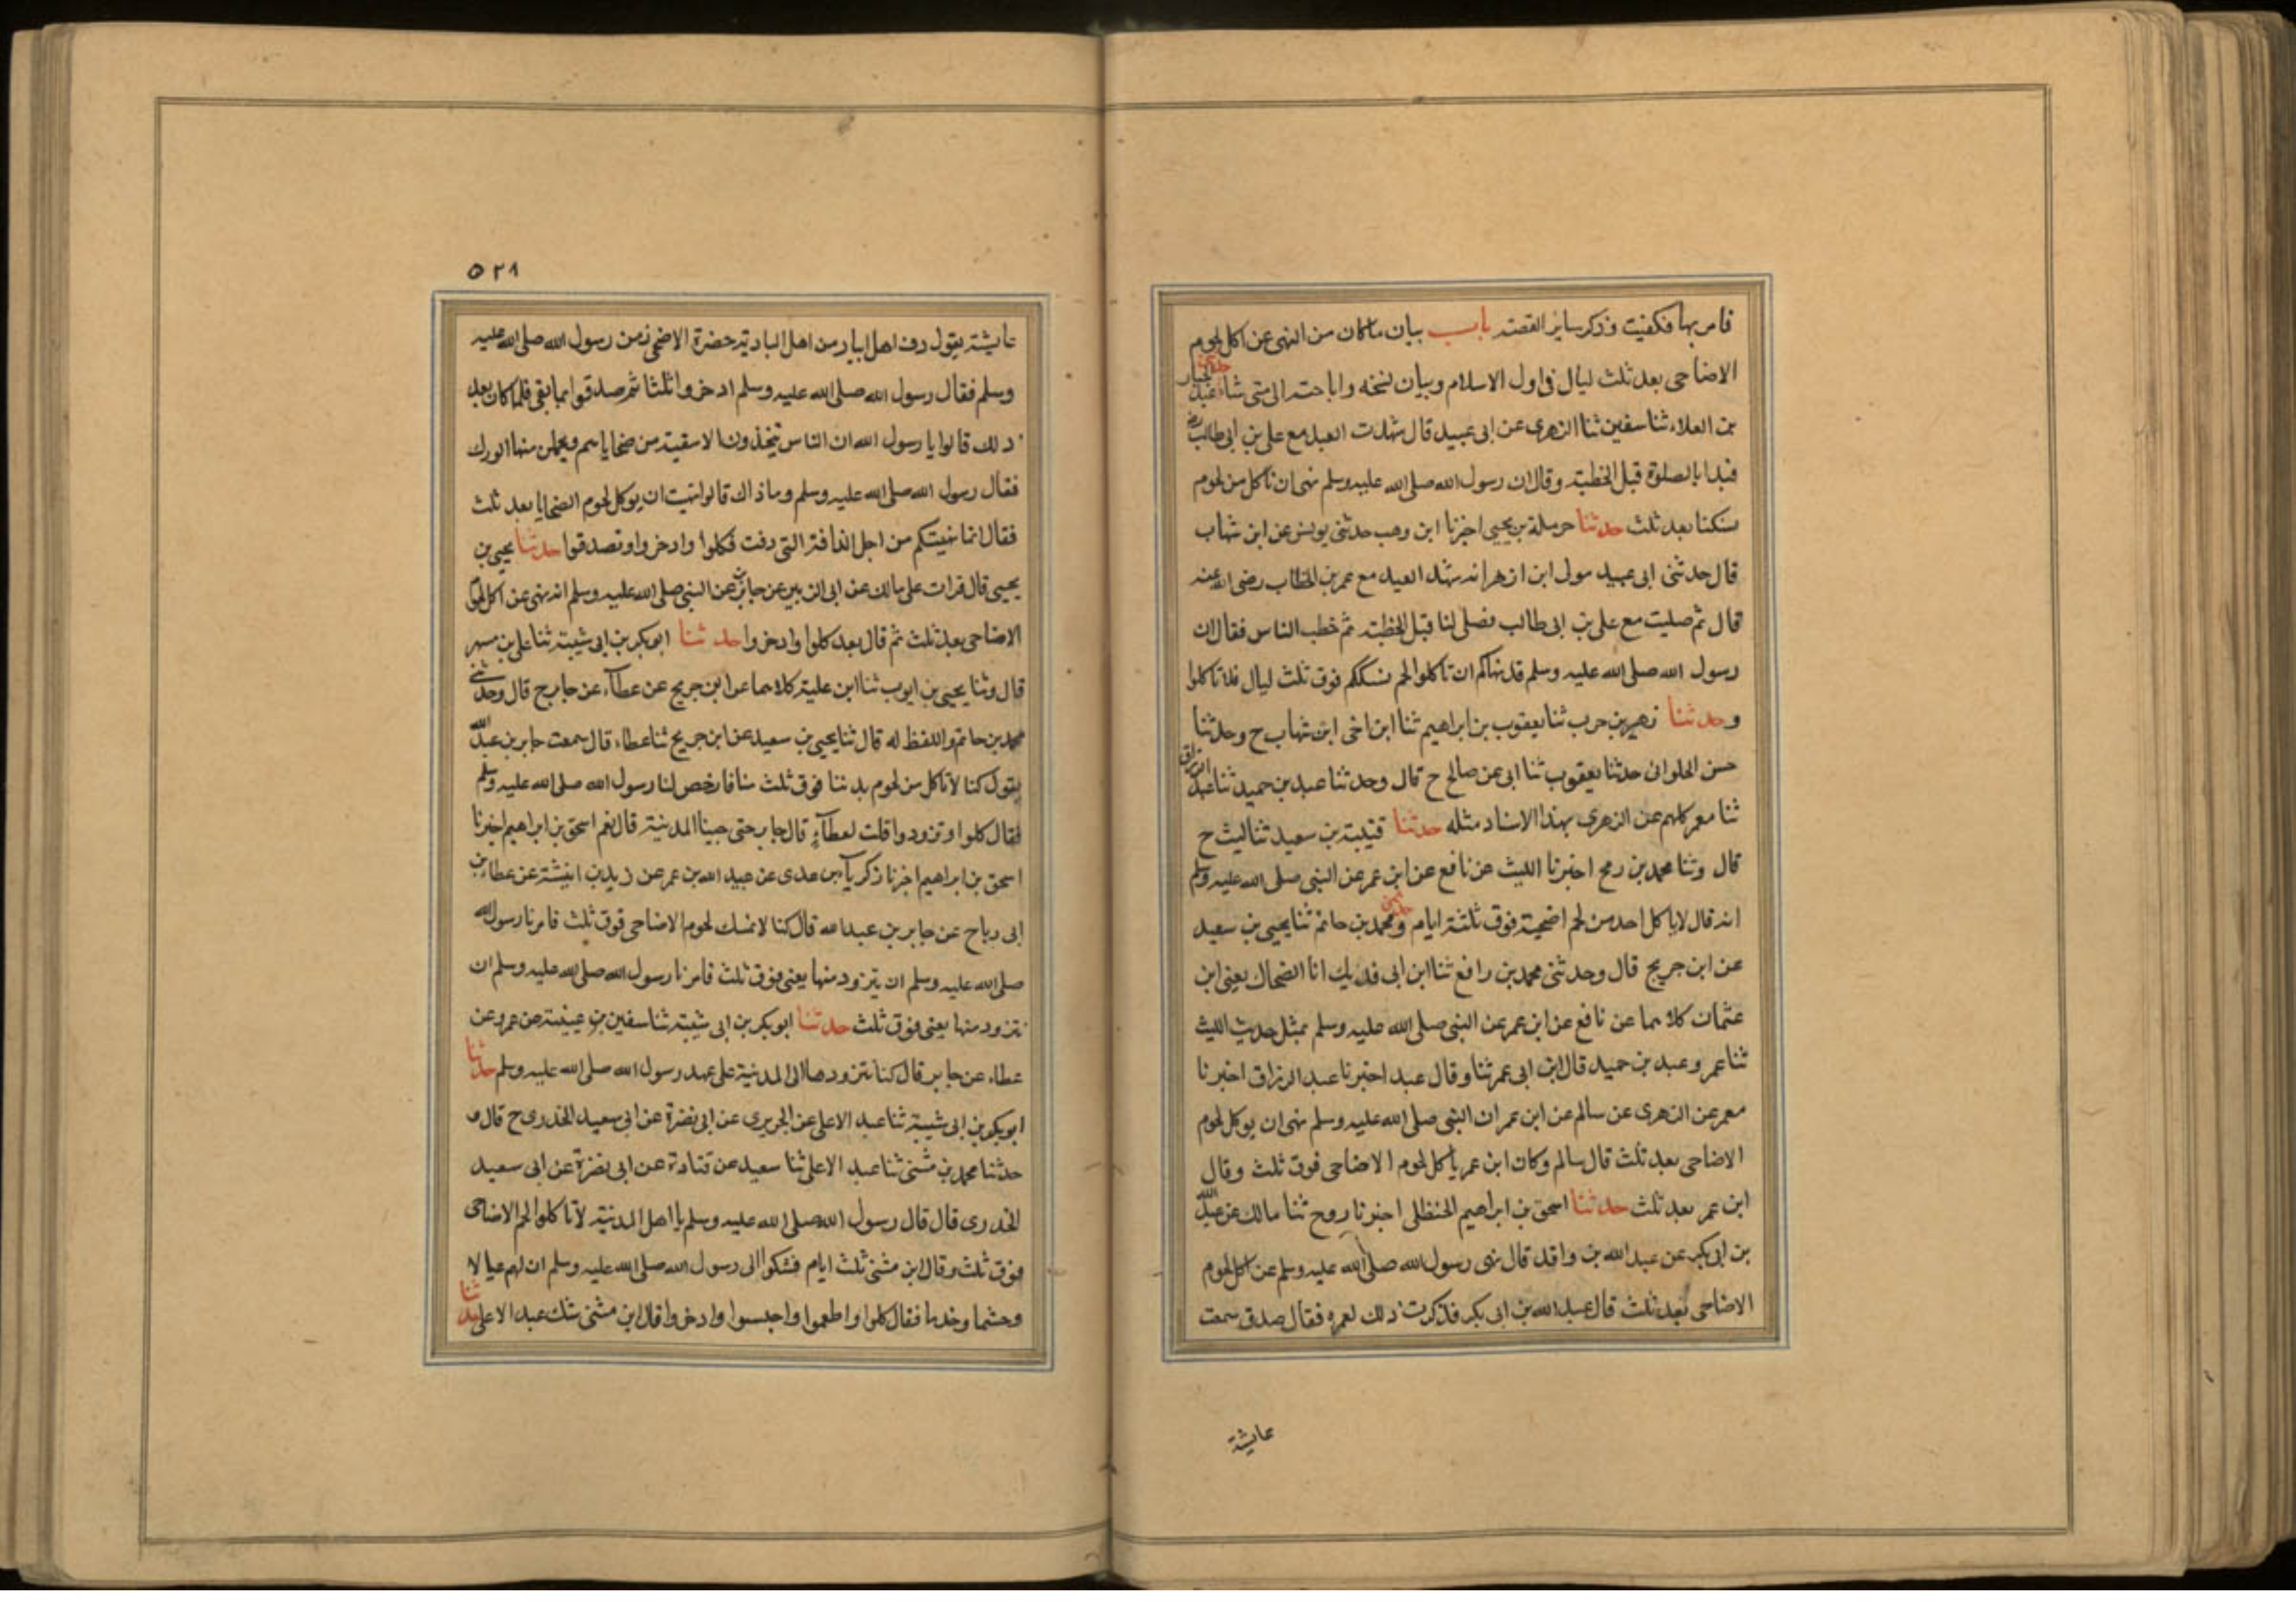 فامر بها فكفيت وذكر ساير القصة باب بيان ماكان من النهى عن اكل لحوم
الاضاحى بعد ثلث ليال فى اول الاسلام وبيان نسخه واباحته الى متى شاء حدثنى عبد الجبار
بن العلاء ثنا سفين ثنا الزهرى عن ابى عبيد قال شهدت العيد مع على بن ابى طالب رض
فبدا بالصلوة قبل الخطبة وقال ان رسول الله صلى الله عليه وسلم نهى ان ناكل من لحوم
نسكنا بعد ثلث حدثنا حرملة بن يحيى اخبرنا ابن وهب حدثنى يونس عن ابن شهاب
قال حدثنى ابى عبيد مول ابن ازهر انه شهد العيد مع عمر بن الخطاب رضى الله عنه
قال ثم صليت مع على بن ابى طالب فصلى لنا قبل الخطبة ثم خطب الناس فقال ان
رسول الله صلى الله عليه وسلم قد نهاكم ان تاكلوا لحم نسككم فوق ثلث ليال فلا تاكلوا
وحدثنا زهير بن حرب ثنا يعقوب بن ابراهيم ثنا ابن اخى ابن شهاب ح وحدثنا
حسن الحلوانى حدثنا يعقوب ثنا ابى عن صالح ح قال وحدثنا عبد بن حميد ثنا عبد الرزاق
ثنا معمر كلهم عن الزهرى بهذا الاسناد مثله حدثنا قتيبة بن سعيد ثنا ليث ح
قال وثنا محمد بن رمح اخبرنا الليث عن نافع عن ابن عمر عن النبى صلى الله عليه وسلم
انه قال لا ياكل احد من لحم اضحية فوق ثلثة ايام حدثنى ومحمد بن حاتم ثنا يحيى بن سعيد
عن ابن جريج قال وحدثنى محمد بن رافع ثنا ابن ابى فديك انا الضحاك يعنى ابن
عثمان كلاهما عن نافع عن ابن عمر عن النبى صلى الله عليه وسلم بمثل حديث الليث
ثنا عمر وعبد بن حميد قال ابن ابى عمر ثنا وقال عبد اخبرنا عبد الرزاق اخبرنا
معمر عن الزهرى عن سالم عن ابن عمر ان النبى صلى الله عليه وسلم نهى ان يوكل لحوم
الاضاحى بعد ثلث قال سالم وكان ابن عمر ياكل لحوم الاضاحى فوق ثلث وقال
ابن عمر بعد ثلث حدثنا اسحق بن ابراهيم الحنظلى اخبرنا روح ثنا مالك عن عبد الله
بن ابى بكر عن عبد الله بن واقد قال نهى رسول الله صلى الله عليه وسلم عن اكل لحوم
الاضاحى بعد ثلث قال عبد الله بن ابى بكر فذكرت ذلك لعمرة فقال صدق سمعت
عايشة
٥٢٨
عايشة يقول دف اهل ابيار من اهل البادية حضرة الاضحى زمن رسول الله صلى الله عليه
وسلم فقال رسول الله صلى الله عليه وسلم ادخروا ثلثا ثم صدقوا بما بقى فلما كان بعد
ذلك قالوا يا رسول الله ان الناس يتخذون الاسقية من ضحاياهم ويجملن منها الورك
فقال رسول الله صلى الله عليه وسلم وما ذاك قالوا نهيت ان يوكل لحوم الضحايا بعد ثلث
فقال انما نهيتكم من اجل الدافة التى دفت فكلوا وادخروا وتصدقوا حدثنا يحيى بن
يحيى قال قرات على مالك عن ابى الزبير عن جابر عن النبى صلى الله عليه وسلم انه نهى عن اكل لحوم
الاضاحى بعد ثلث ثم قال بعد كلوا وادخروا حدثنا ابو بكر بن ابى شيبة ثنا على بن مسهر
قال وثنا يحيى بن ايوب ثنا ابن علية كلاهما عن ابن جريج عن عطآء عن جابر ح قال وحدثنى
محمد بن حاتم واللفظ له قال ثنا يحيى بن سعيد عن ابن جريج ثنا عطاء قال سمعت جابر بن عبد الله
يقول كنا لا ناكل من لحوم بدننا فوق ثلث منا فارخص لنا رسول الله صلى الله عليه وسلم
فقال كلوا وتزودوا قلت لعطآء قال جابر حتى جينا المدينة قال نعم اسحق بن ابراهيم اخبرنا
اسحق بن ابراهيم اخبرنا زكريآ بن عدى عن عبيد الله بن عمر عن زيد بن انيشة عن عطاء بن
ابى رباح عن جابر بن عبد الله قال كنا لا نمسك لحوم الاضاحى فوق ثلث فامرنا رسول الله
صلى الله عليه وسلم ان يتزود منها يعنى فوق ثلث فامرنا رسول الله صلى الله عليه وسلم ان
نتزود منها يعنى فوق ثلث حدثنا ابو بكر بن ابى شيبة ثنا سفين بن عيينة عن عمرو عن
عطاء عن جابر قال كنا نتزودها الى المدينة على عهد رسول الله صلى الله عليه وسلم حدثنا
ابو بكر بن ابى شيبة ثنا عبد الاعلى عن الجريرى عن ابى نضرة عن ابى سعيد الخدرى ح قال و
حدثنا محمد بن مثنى ثنا عبد الاعلى ثنا سعيد عن قتادة عن ابى نضرة عن ابى سعيد
الخدرى قال قال رسول الله صلى الله عليه وسلم يا اهل المدينة لا تاكلوا لحم الاضاحى
فوق ثلث وقال ابن مثنى ثلث ايام فشكوا الى رسول الله صلى الله عليه وسلم ان لهم عيالا
وحشما وخدما فقال كلوا واطعموا واحبسوا وادخروا قال ابن مثنى شك عبد الاعلى حدثنا